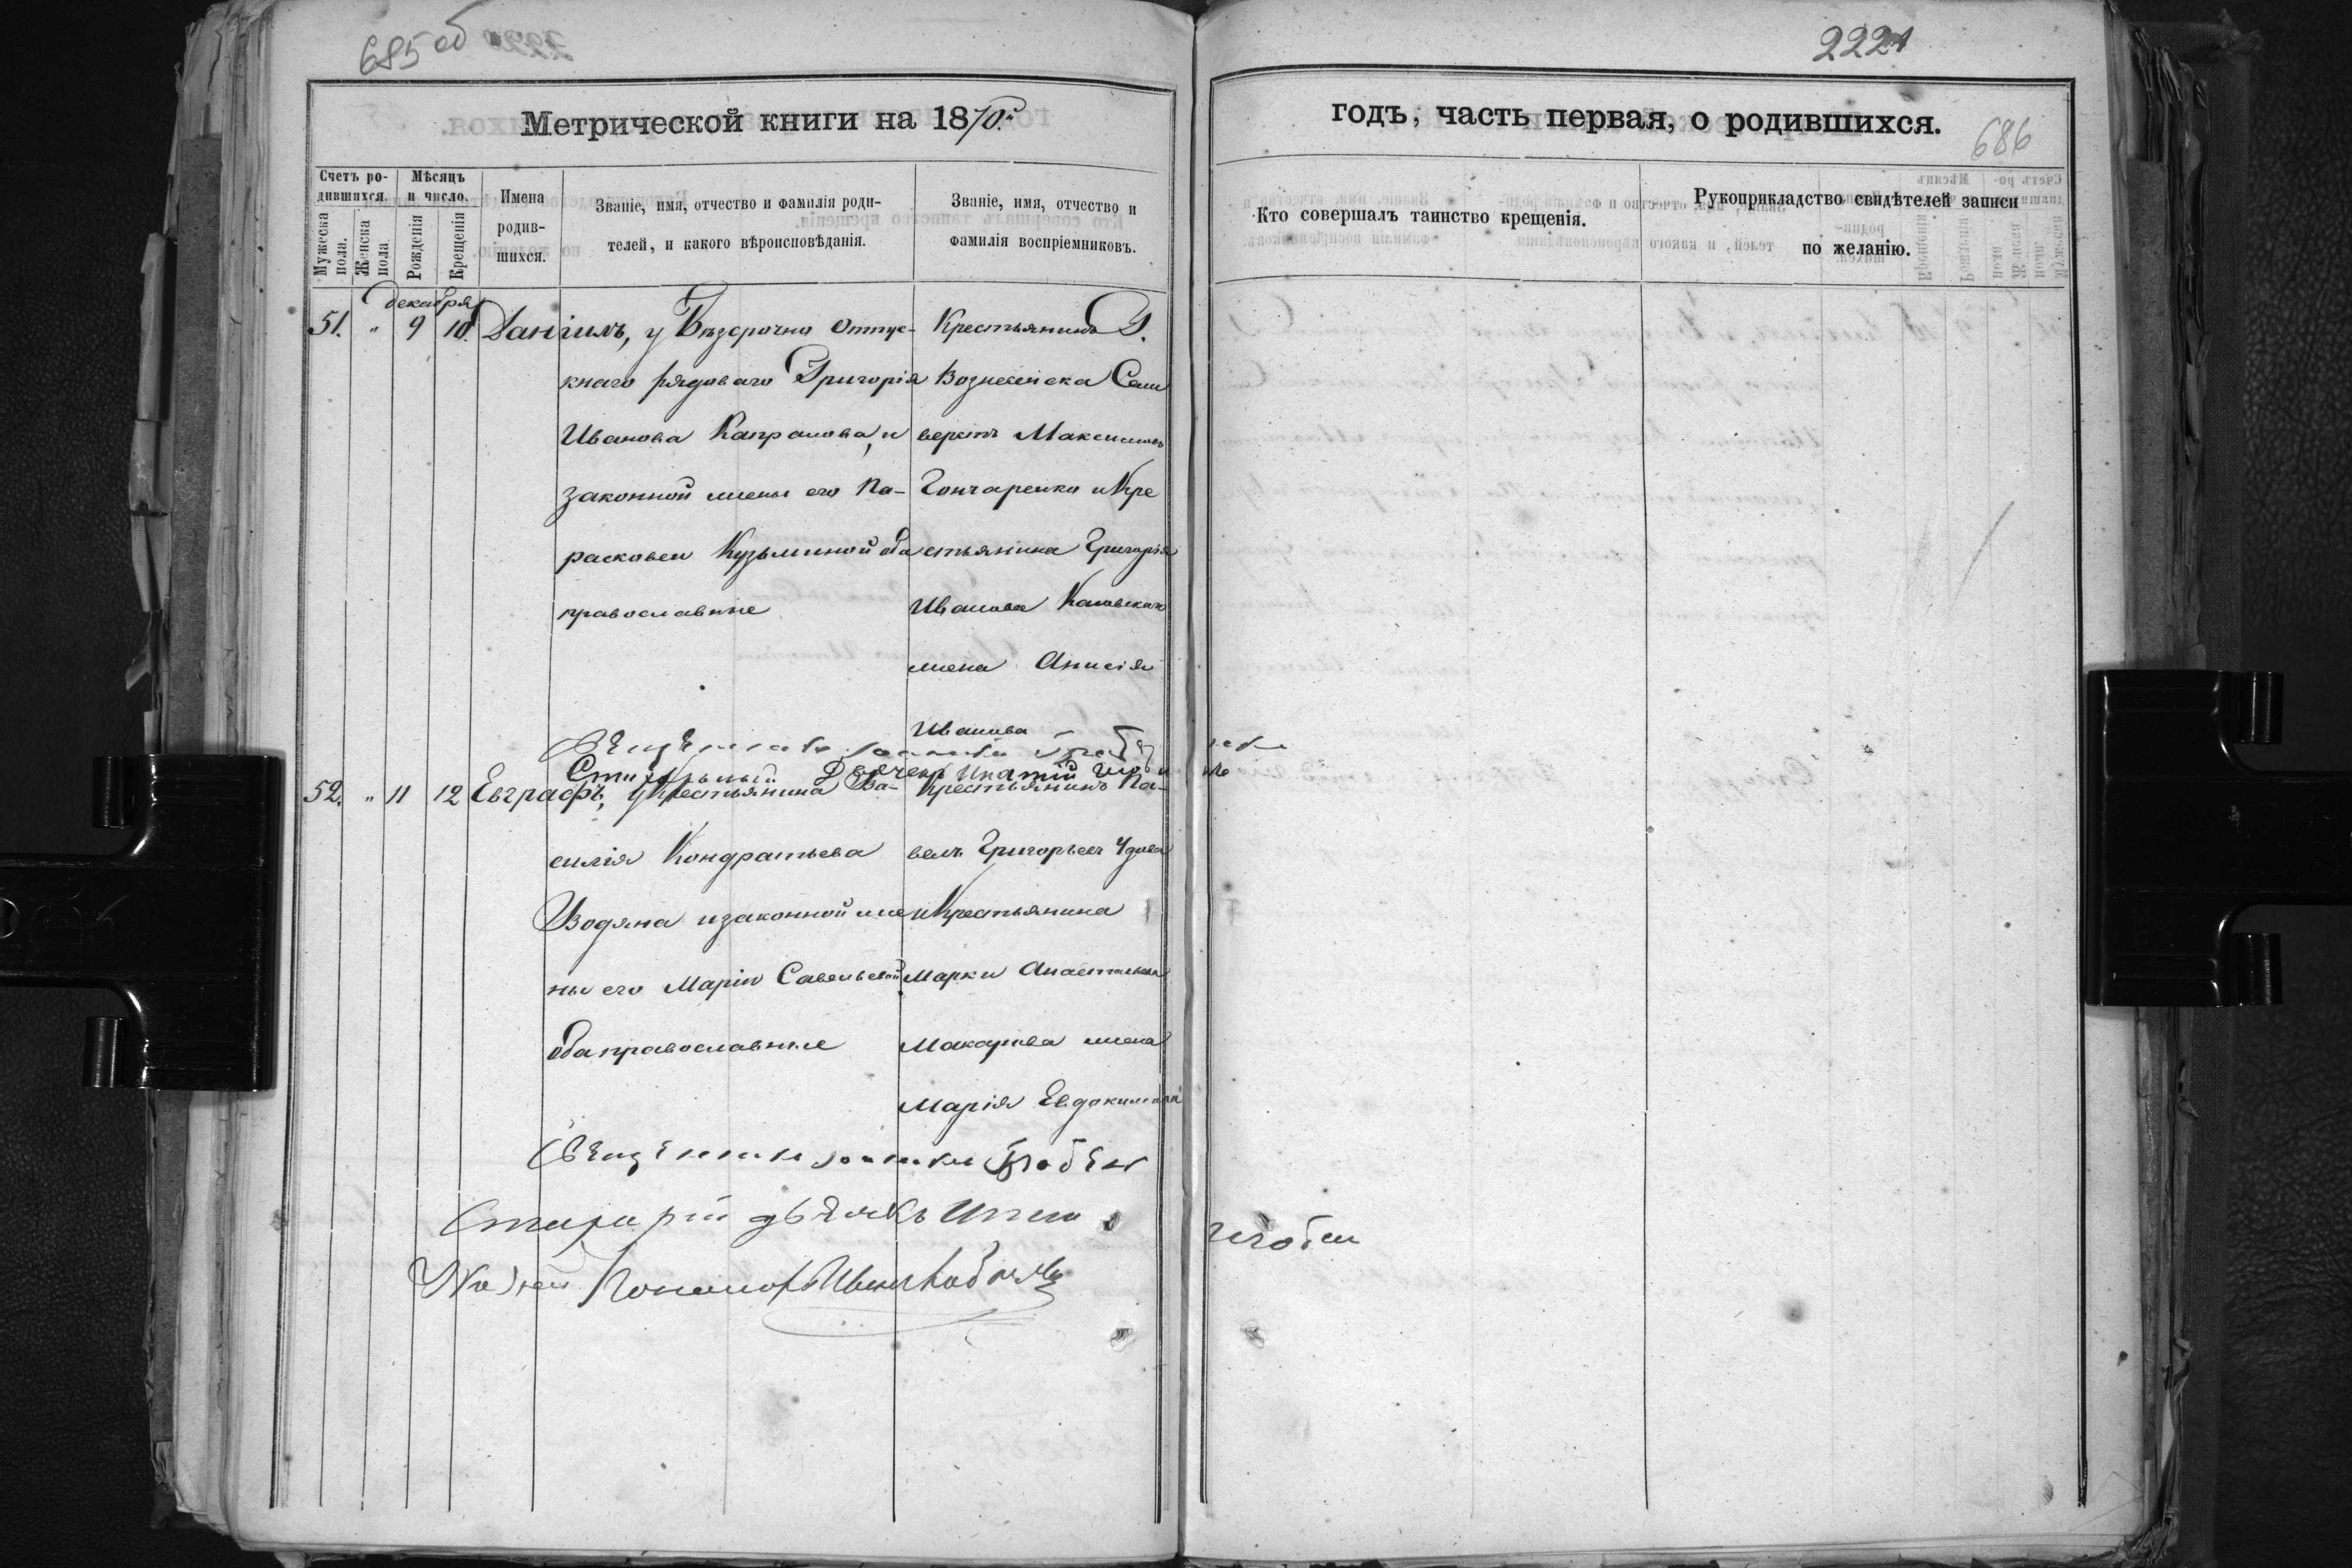 685 об
2221
686
Метрической книги на 1870й
годъ, часть первая, о родившихся.
Счетъ родившихся.
Мужеска пола.
Женска пола.
Мѣсяцъ и число.
Рожденія
Крещенія
Имена родившихся.
Званіе, имя, отчество и фамилія родителей, и какого вѣроисповѣданія.
Званіе, имя, отчество и фамилія воспріемниковъ.
Кто совершалъ таинство крещенія.
Рукоприкладство свидѣтелей записи по желанію.
декабря
51. " 9 10. Даніилъ, у Безсрочно отпус-
кнаго рядоваго Григорія
Иванова Капранова, и
законной жены его Па-
расковеи Кузьминой оба
православные
Крестьянинъ Г.
Вознесенска Сели
верстъ Максимовъ
Гончаренко и Кре
стьянина Григорія
Иванова
жена Анисія
Иванова
Священникъ
Дьячекъ Ипатій
52. " 11 12 Евграфъ, у Крестьянина Ва-
силія Кондратьева
Водяна и законной же
ны его Маріи Савельевой
оба православные
Крестьянинъ Па-
велъ Григорьевъ
и Крестьянина
Марки
Макарова жена
Марія Евдокимова
Священникъ
дьячекъ
Пономарь